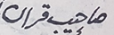 صاحبقران